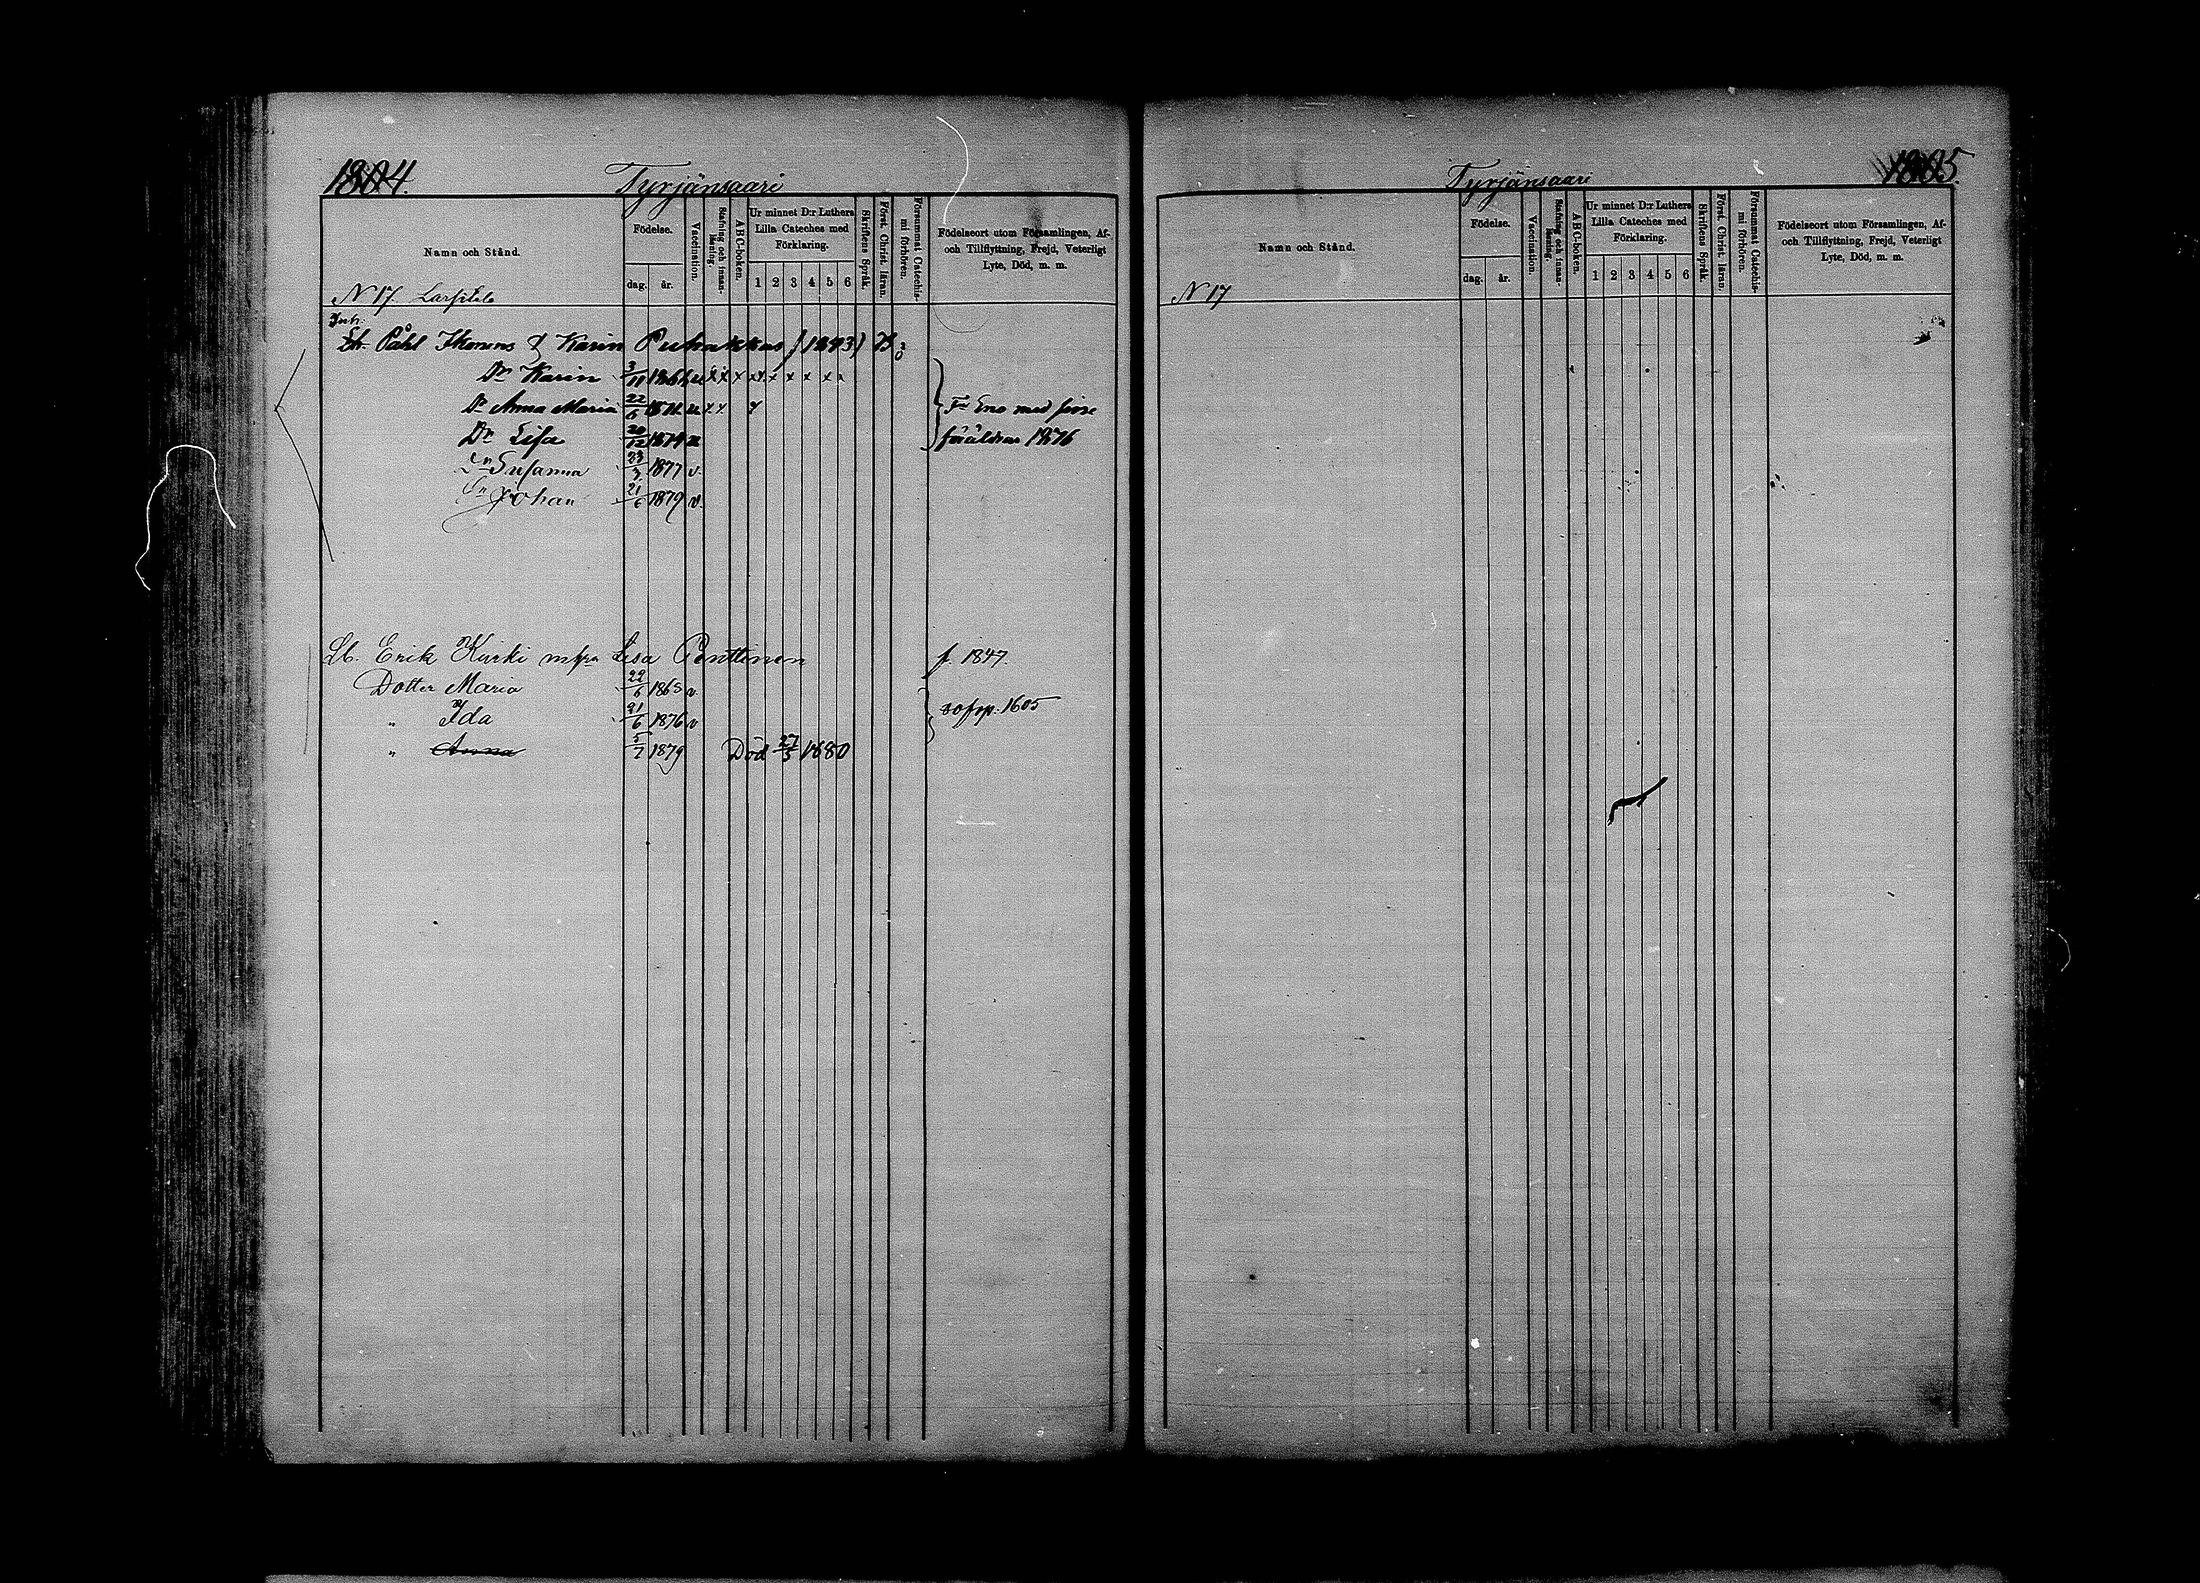 1804.
Tyrjänsaari
Namn och Stånd.
Födelse.
dag.
år.
Vaccination.
Stafning och innanläsning.
ABC-boken.
Ur minnet D:r Luthers
Lilla Cateches med
Förklaring.
1 2 3 4 5 6
Skriftens Språk.
Först. Christ. läran.
Försummat Catechismi förhören.
Födelseort utom Församlingen, Af-
och Tillflyttning, Frejd, Veterligt
Lyte, Död, m. m.
N 17
Inh.
Påhl Ikonens & Karin Puhakkas (1843) B:
Dr Karin 3/11 186 v x x x x x x x x x
Dr Anna Maria 22/6 v x x x Fr Eno med sine
Dr Lisa 20/12 v föräldrar 1876
Dr Susanna 23/3 1877 v.
Sn Johan 21/6 1879 v.
Lb. Erik Kärki m hu Lisa Penttinen f. 1847.
Dotter Maria 22/6 186 v.
" Ida 21/6 1876 v 1605
" Anna 5/7 1879 Död 27/5 1880
Tyrjänsaari
1805.
Namn och Stånd.
Födelse.
dag.
år.
Vaccination.
Stafning och innanläsning.
ABC-boken.
Ur minnet D:r Luthers
Lilla Cateches med
Förklaring.
1 2 3 4 5 6
Skriftens Språk.
Först. Christ. läran.
Försummat Catechismi förhören.
Födelseort utom Församlingen, Af-
och Tillflyttning, Frejd, Veterligt
Lyte, Död, m. m.
N 17